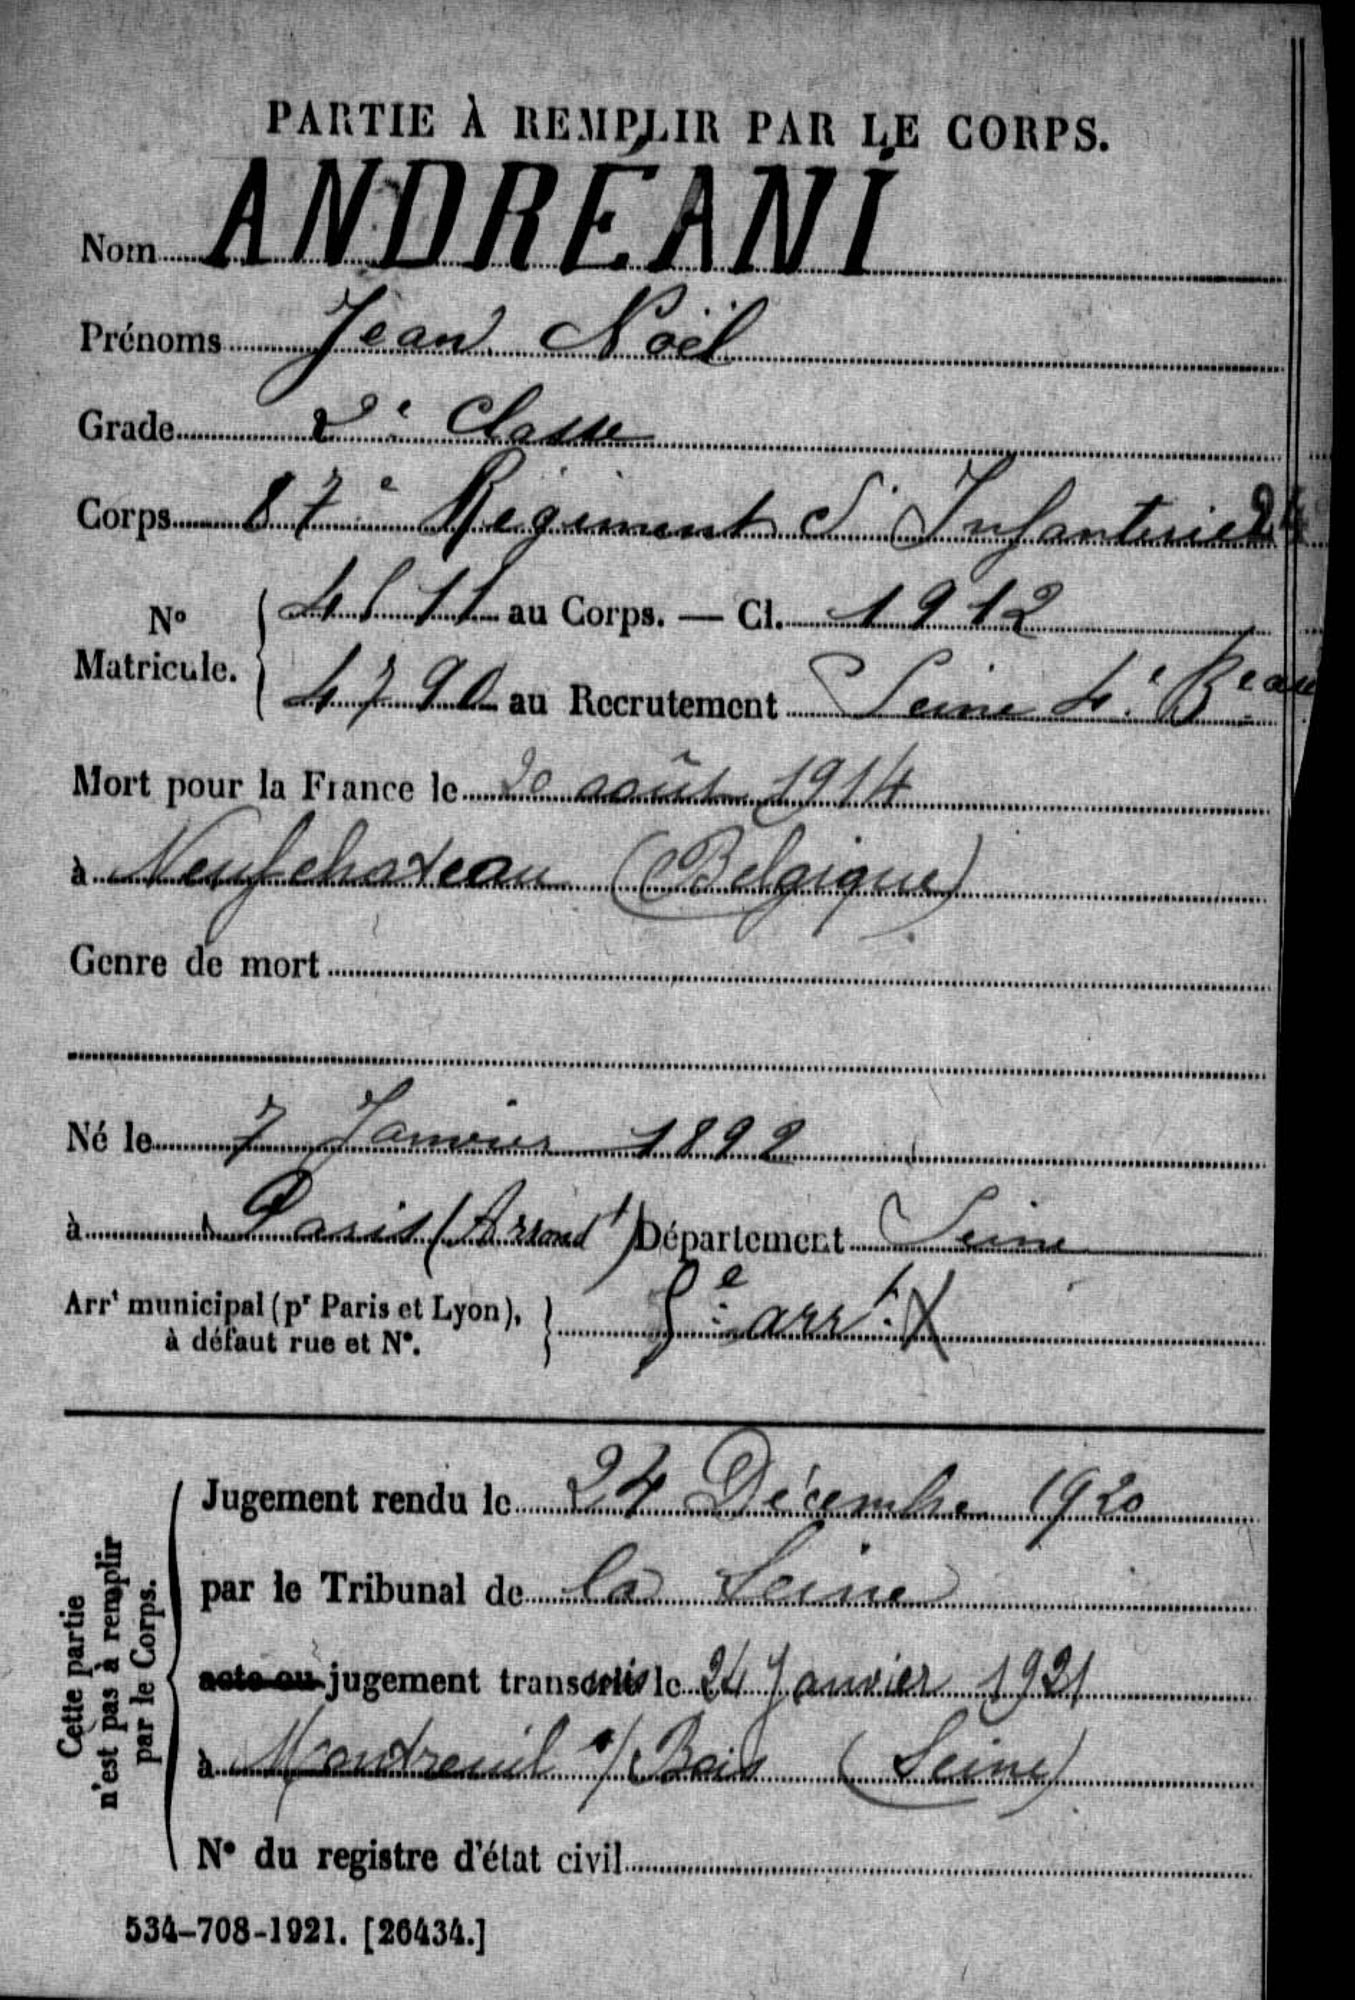 PARTIE À REMPLIR PAR LE CORPS.
Nom ANDRÉANI
Prénoms Jean Noël
Grade 2e Classe
Corps 87e Régiment d'Infanterie 24
No Matricule. 4511 au Corps. — Cl. 1912
4790 au Recrutement Seine 4e Beau
Mort pour la France le 20 août 1914
à Neufchateau (Belgique)
Genre de mort
Né le 7 Janvier 1892
à Paris (Arrondt) Département Seine
Arrt municipal (pr Paris et Lyon), à défaut rue et No. 5e arrt. X
Cette partie n'est pas à remplir par le Corps.
Jugement rendu le 24 Décembre 1920
par le Tribunal de la Seine
acte ou jugement transcrit le 24 Janvier 1921
à Montreuil s/ Bois (Seine)
No du registre d'état civil
534-708-1921. [26434.]